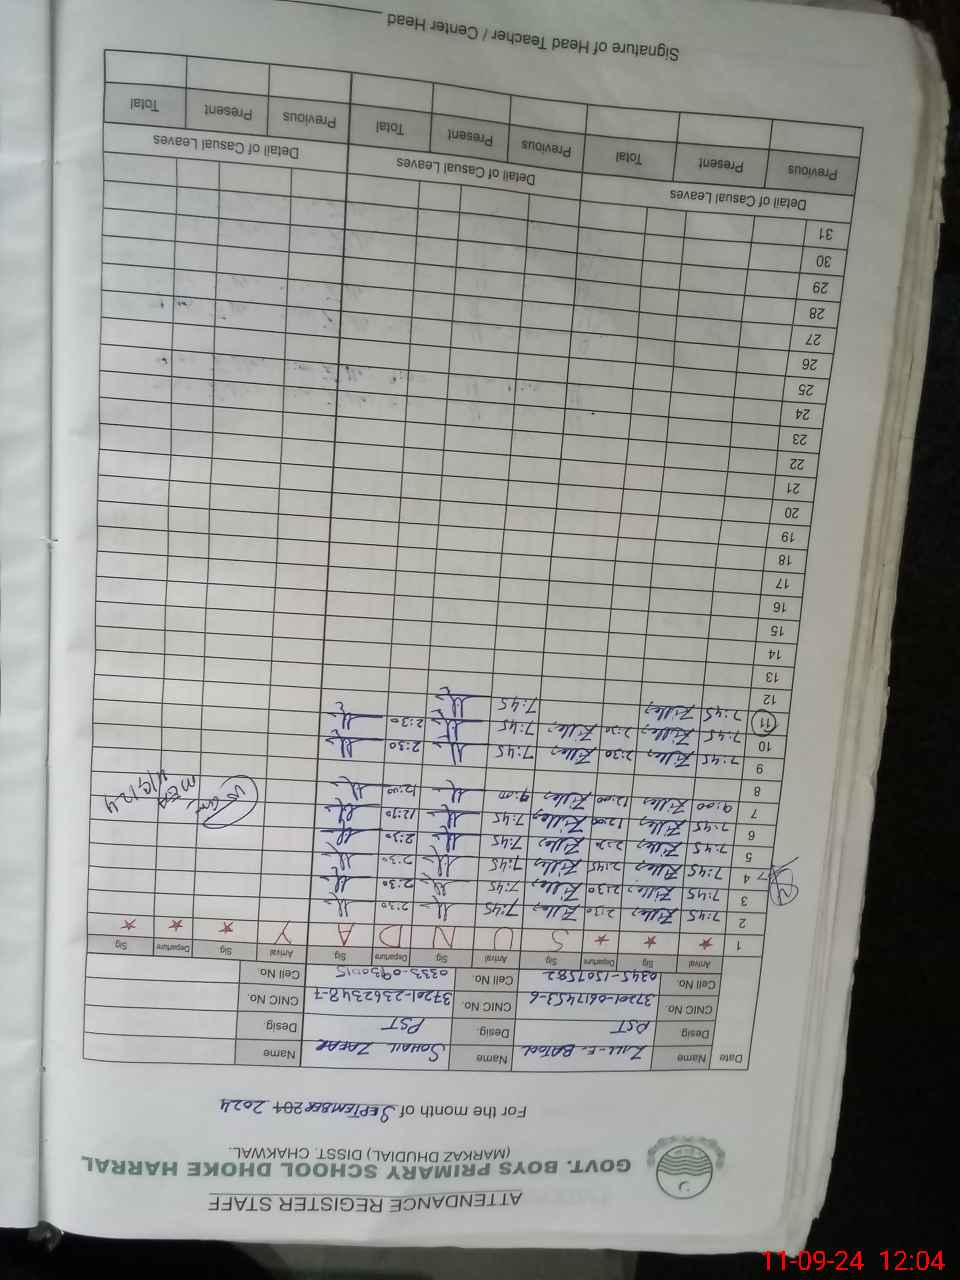 ATTENDANCE REGISTER STAFF
GOVT. BOYS PRIMARY SCHOOL DHOKE HARRAL
(MARKAZ DHUDIAL) DISST. CHAKWAL.
For the month of SEPTEMBER 201 2024
Date Name ZILL-E-BATOOL Name SOHAIL ZAFAR Name
Desig PST Desig. PST Desig
CNIC No. 37201-0617453-6 CNIC No. 37201-2362348-7 CNIC No.
Cell No. 0345-1507582 Cell No. Cell No.
Arrival Sig Departure Sig Arrival Sig Departure Sig Arrival Sig Departure Sig
1 ★ ★ ★ S U N D A Y ★ ★ ★
2 7:45 Zille 2:30 Zille 7:45 2:30
3 7:45 Zille 2:30 Zille 7:45 2:30
4 7:45 Zille 2:45 Zille 7:45 2:30
5 7:45 Zille 2:30 Zille 7:45 2:30
6 7:45 Zille 12:00 Zille 7:45 12:30
7 9:00 Zille 12:00 Zille 9:00 12:00
MEA
4/9/24
8
9 7:45 Zille 2:30 Zille 7:45 2:30
10 7:45 Zille 2:30 Zille 7:45 2:30
11 7:45 Zille 7:45
12
13
14
15
16
17
18
19
20
21
22
23
24
25
26
27
28
29
30
31
Detail of Casual Leaves Detail of Casual Leaves Detail of Casual Leaves
Previous Present Total Previous Present Total Previous Present Total
Signature of Head Teacher / Center Head
11-09-24 12:04